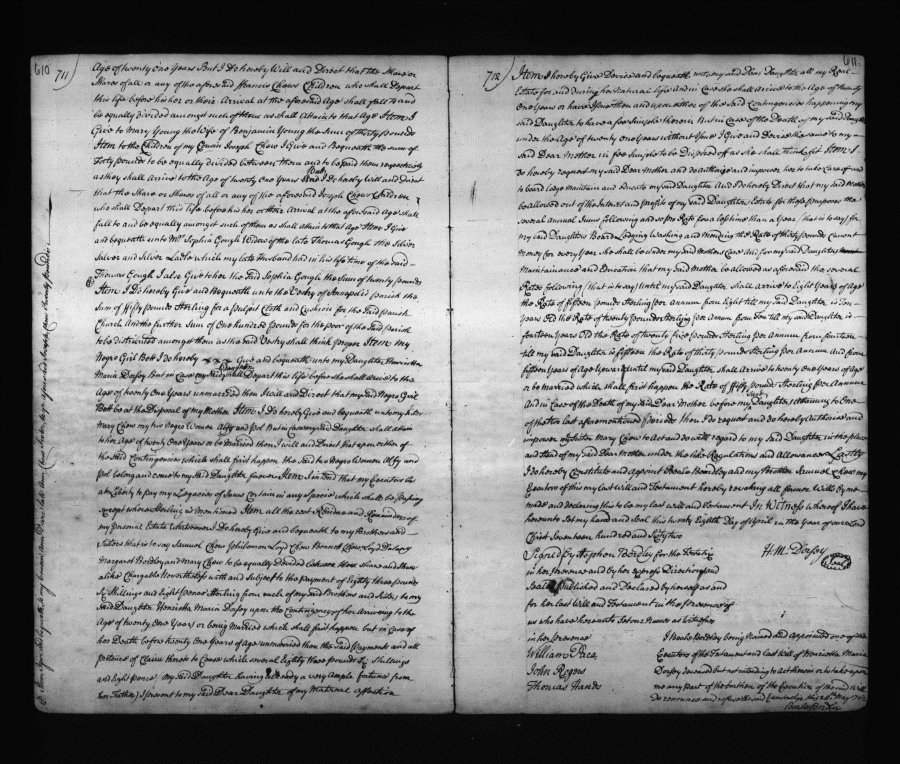 610
711)
Age of twenty one Years But I do hereby Will and Direct that the Share or
Shares of all or any of the aforesaid Francis Chews Children who shall Depart
this life before his her or their Arrival at the aforesaid Age shall fall to and
be equally divided amongst such of them as shall Attain to that Age Item I
Give to Mary Young the Wife of Benjamin Young the Sum of thirty pounds
Item to the Children of my Cousin Joseph Chew I Give and Bequeath the sum of
Forty pounds to be equally divided between them and to be paid them respectively
as they shall arrive to the Age of twenty One Years But I do hereby will and Direct
that the Share or Shares of all or any of the aforesaid Joseph Chews Children
who shall Depart this life before his her or their Arrival at the aforesaid Age shall
fall to and be equally amongst such of them as shall attain to that Age Item I Give
and bequeath unto Mrs Sophia Gough Widow of the late Thomas Gough the Silver
Salver and Silver Ladle which my late Husband had in his life time of the said
Thomas Gough I also Give to her the said Sophia Gough the Sum of twenty pounds
Item I Do hereby Give and Bequeath unto the Vestry of Annapolis parish the
Sum of fifty pounds Sterling for a pulpit Cloth and Cushion for the said parish
Church And the further Sum of One hundred pounds for the poor of the said parish
to be Distributed amongst them as the said Vestry shall think proper Item my
Negro Girl Bett I do hereby x x x Give and bequeath unto my Daughter Henrietta
Maria Dorsey But in Case my said Daughter shall Depart this life before she shall Arrive to the
Age of twenty One Years unmarried then I will and Direct that my said Negro Girl
Bett be at the Disposal of my Mother Item I Do hereby Give and bequeath unto my Sister
Mary Chew my two Negro Women Alfy and Pol But in Case my said Daughter shall attain
to her Age of twenty One Years or be Married then I will and Direct that upon either of
the said Contingencies which shall first happen the said two Negro Women Alfy and
Pol belong and come to my said Daughter forever Item I intend that my Executors be
at liberty to pay my Legacies of Sums Certain in any Specie which shall be passing
except where Sterling is Mentioned Item all the rest Residue and Remainder of
my personal Estate Whatsoever I Do hereby Give and bequeath to my Brothers and
Sisters that is to say Samuel Chew John Chew Loyd Chew Bennet Chew
Margaret Bordley and Mary Chew to be equally divided between them Share and Share
alike Chargable Nevertheless with and Subject to the payment of Eighty three pounds
Six Shillings and Eight pence Sterling from each of my said Brothers and Sisters to my
Said Daughter Henrietta Maria Dorsey upon the Contingency of her Arriving to the
Age of twenty One Years or being Married which shall first happen but in Case of
her Death before twenty One Years of Age unmarried then the said Payments and all
pretence of Claim thereto to Cease which several Eighty three pounds Six Shillings
and Eight pence my said Daughter having already a very Ample fortune from
her Father I present to my said Dear Daughter of my Maternal Affection
611
712)
Item I hereby Give Devise and bequeath unto my said Dear Daughter all my Real
Estate for and During her Natural life And in Case she shall Arrive to the Age of twenty
One Years or have Issue then and upon either of the said Contingencies happening my
said Daughter to have a fee Simple therein But in Case of the Death of my said Daughter
under the Age of twenty One years without Issue I Give and Devise the same to my
said Dear Mother in fee Simple to be Disposed of as she shall think fit Item I
do hereby request my said Dear Mother and do authorize and impower her to take Care of and
to board lodge Maintain and Educate my said Daughter And I do hereby Direct that my said Mother
be allowed out of the Interest and profits of my said Daughters Estate for those purposes the
several Annual Sums following and so pro Rata for a less time than a Year (that is to say) for
my said Daughters Board Lodging Washing and Mending the Rate of thirty pounds Current
Money for every Year she shall be under my said Mothers Care And for my said Daughters
Maintainance and Education that my said Mother be allowed as aforesaid the several
Rates following (that is to say) Until my said Daughter shall Arrive to Eight Years of Age
the Rate of fifteen pounds Sterling per Annum from Eight till my said Daughter is Ten
Years Old the Rate of twenty pounds Sterling per Annum from Ten till my said Daughter is
fourteen Years Old the Rate of twenty five pounds Sterling per Annum from fourteen
till my said Daughter is fifteen the Rate of thirty pounds Sterling per Annum And from
fifteen Years of Age upward until my said Daughter shall Arrive to twenty One Years of Age
or be Married which shall first happen the Rate of fifty pounds Sterling per Annum
And in Case of the Death of my said Dear Mother before my said Daughter attaining to One
of the two last aforementioned periods then I do request and do hereby Authorise and
impower my Sister Mary Chew to Act and do with regard to my said Daughter in the place
and stead of my said Dear Mother under the like Regulations and Allowances Lastly
I do hereby Constitute and appoint Beale Bordley and my Brother Samuel Chew my
Executors of this my last Will and Testament hereby revoking all former Wills by me
made and declaring this to be my last will and Testament In Witness whereof I have
hereunto Set my hand and Seal this twenty Eighth Day of April in the Year of our Lord
Christ Seventeen hundred and Sixty two
H: M: Dorsey (Seal)
Signed by Stephen Bordley for the Testatrix
in her presence and by her express Direction and
Sealed Published and Declared by her self as and
for her last Will and Testament in the presence of
us who have hereunto Set our Names as Witnesses
in her presence
William Paca
John Rogers
Thomas Hands
I Beale Bordley being Named and appointed one of the
Executors of the Testament and last Will of Henrietta Maria
Dorsey deceased but not intending to Act therein or to take upon
me any part of the burthen of the Execution of the said Will
Do renounce and refuse the said Executorship this 28th May 1762
Beale Bordley